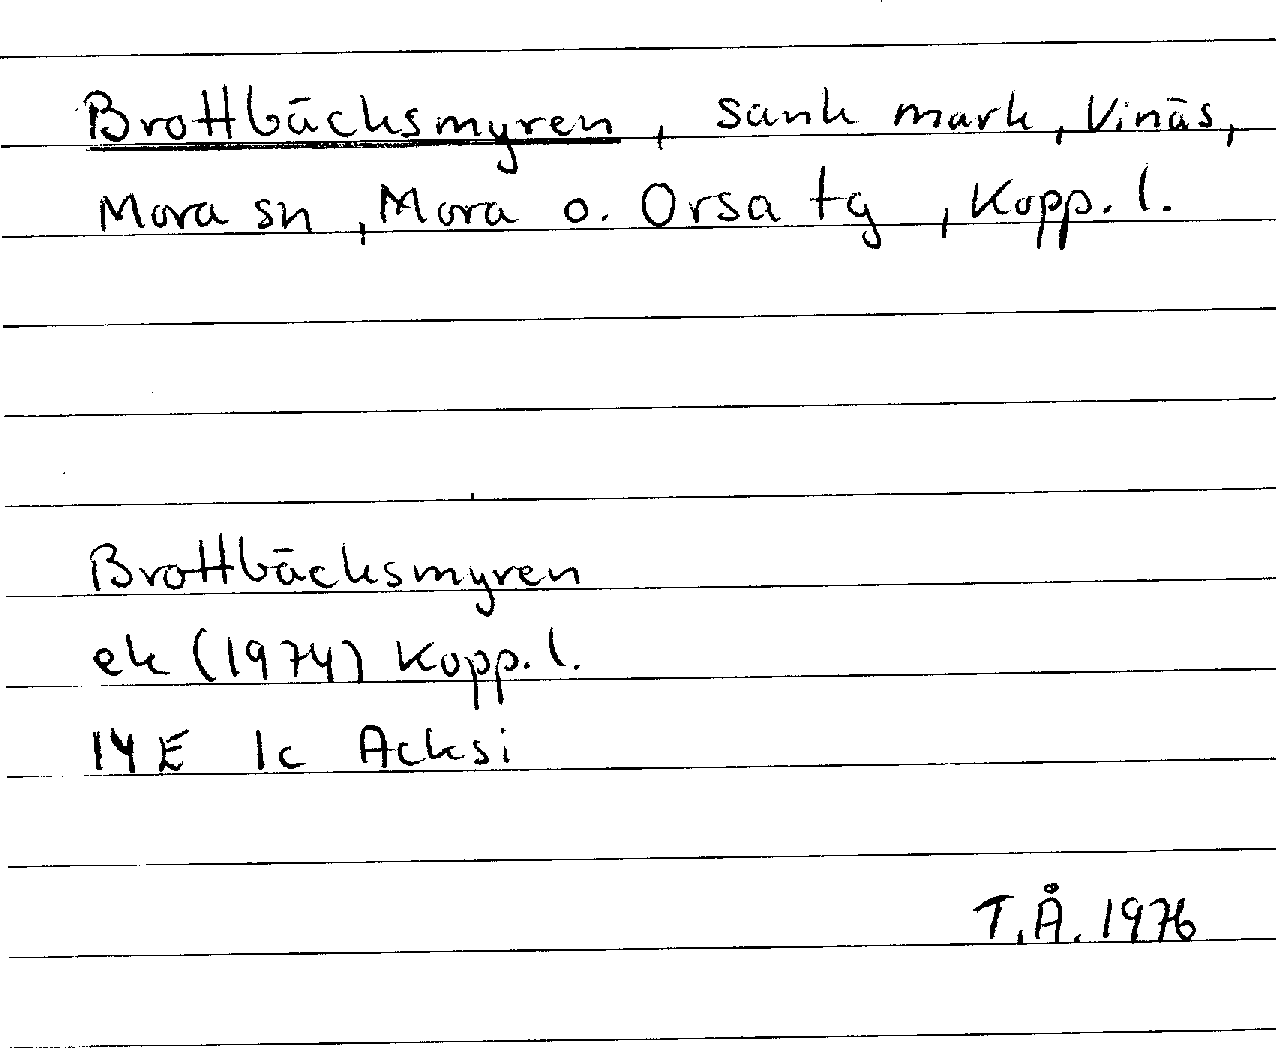 Brottbäcksmyren, sank mark, Vinäs,
Mora sn, Mora o. Orsa tg, Kopp. l.
Brottbäcksmyren
ek (1974) Kopp. l.
14 E 1c Acksi
T.Å. 1976